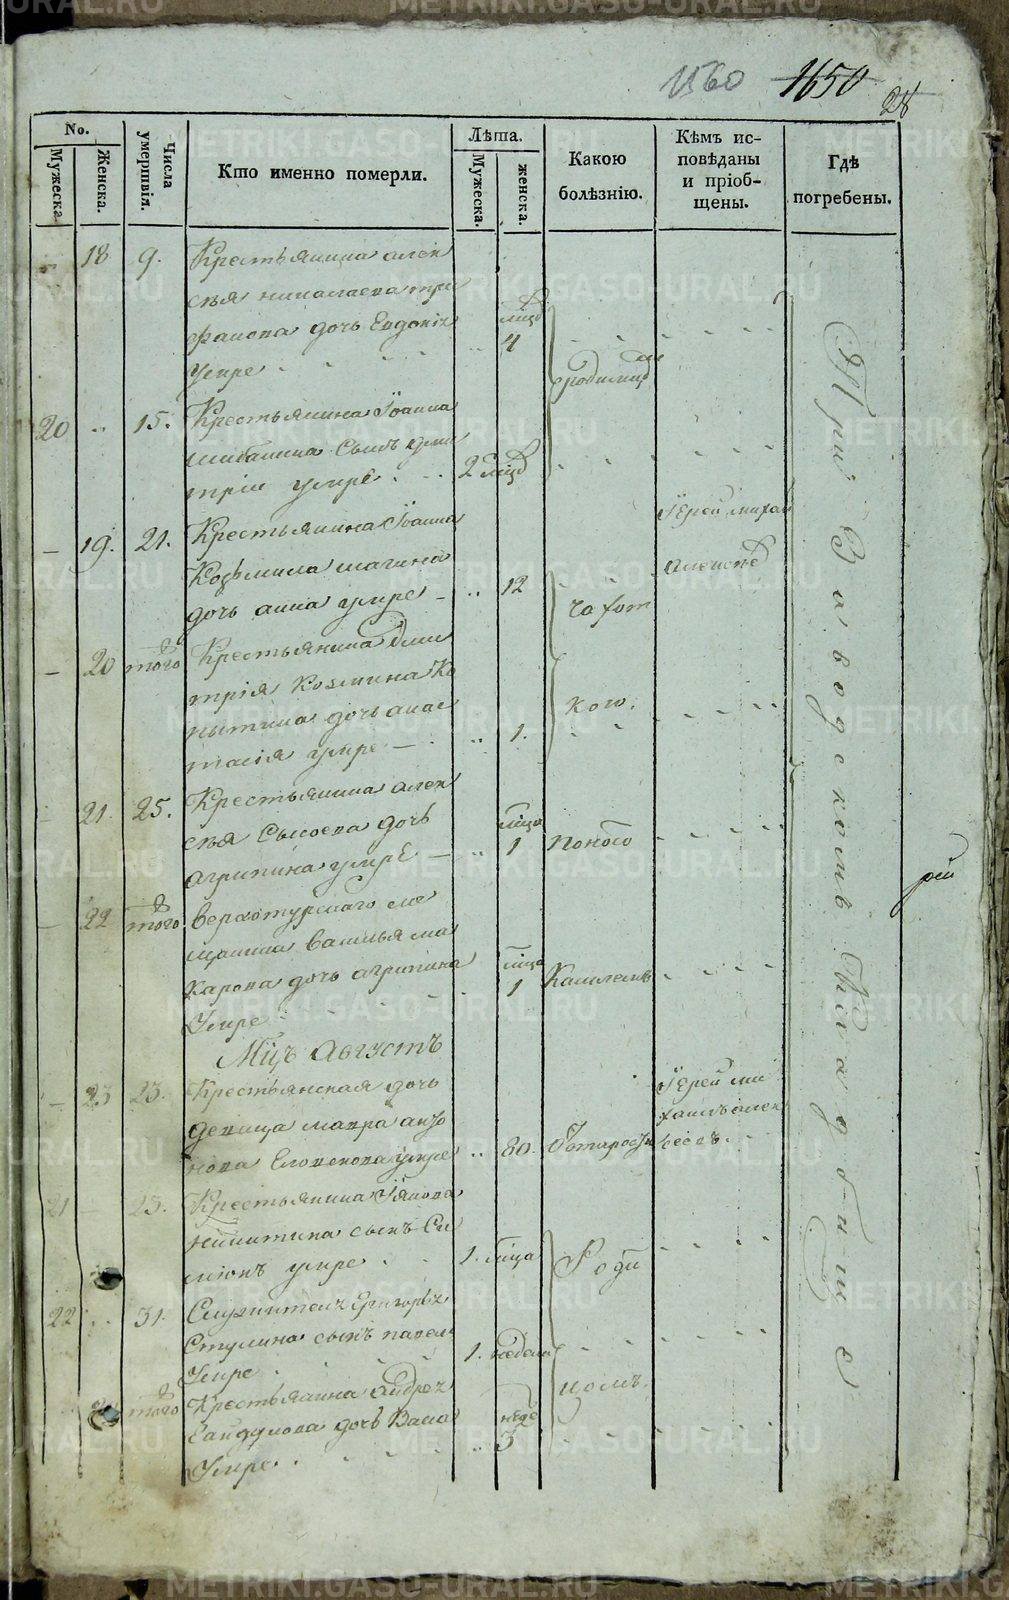 1560 1650 28
No.
Мужеска.
Женска.
Числа умертвія.
Кто именно померли.
Лѣта.
Мужеска.
женска.
Какою
болѣзнію.
Кѣмъ ис-
повѣданы
и пріоб-
щены.
Гдѣ
погребены.
18 9. Крестьянина алек
сѣя николаева три
фанова дочь Евдокія
мѣсяц
4
умре
родимцемъ
20 15. Крестьянина Іоанна
шибанина Сынъ дми
трій умре 2 мѣся
19. 21. Крестьянина Іоанна
Іерей михаи
Козьмина
дочь анна умре 12
Алексѣев
чахот
20 того Крестьянина дми
трія Козмина Ко
пытина дочь анас
тасія умре 1.
кою.
21. 25. Крестьянина алек
сѣя Сысоева дочь
агрипина умре
мѣсяца
1
поносо
22 того верхотурскаго ме
щанина василья ма
карова дочь агрипина
умре
мѣсяца
1
Кашлемъ
Мцъ Августъ
23 23. Крестьянская дочь
девица мавра анто
нова умре 80. От старости
Іерей ми
хаилъ алек
сеевъ
21 23. Крестьянина Іакова
никитина сынъ Си
мионъ умре 1. мѣсяца
Роди
22 31. Служителя Григорья
Стулина сынъ павелъ
умре 1. неделя
цомъ.
того Крестьянина андрея
дочь Васса
умре
неде
3
При Заводскомъ Кладбище
рей
METRIKI.GASO-URAL.RU